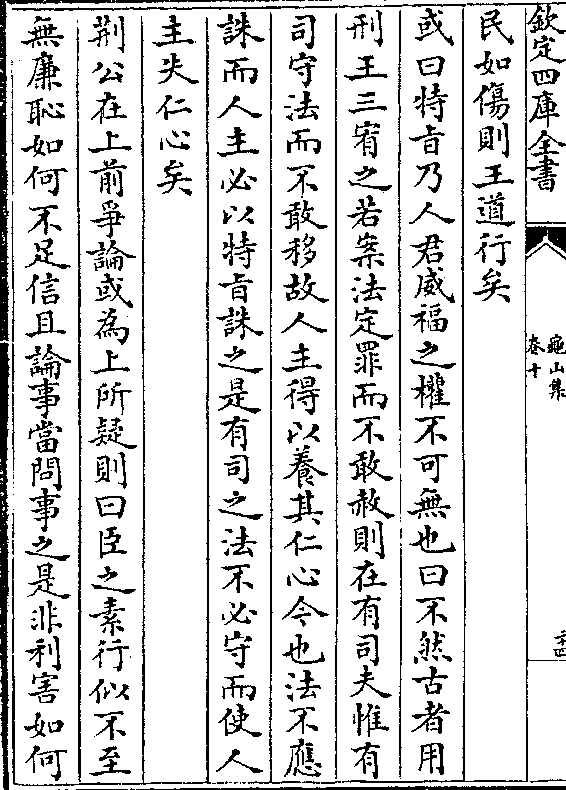 欽定四庫全書
龜山集
卷十
二十四
民如傷則王道行矣
或曰特㫖乃人君威福之權不可無也曰不然古者用
刑王三宥之若案法定罪而不敢赦則在有司夫惟有
司守法而不敢移故人主得以養其仁心今也法不應
誅而人主必以特㫖誅之是有司之法不必守而使人
主失仁心矣
荆公在上前爭論或為上所疑則曰臣之素行似不至
無廉恥如何不足信且論事當問事之是非利害如何